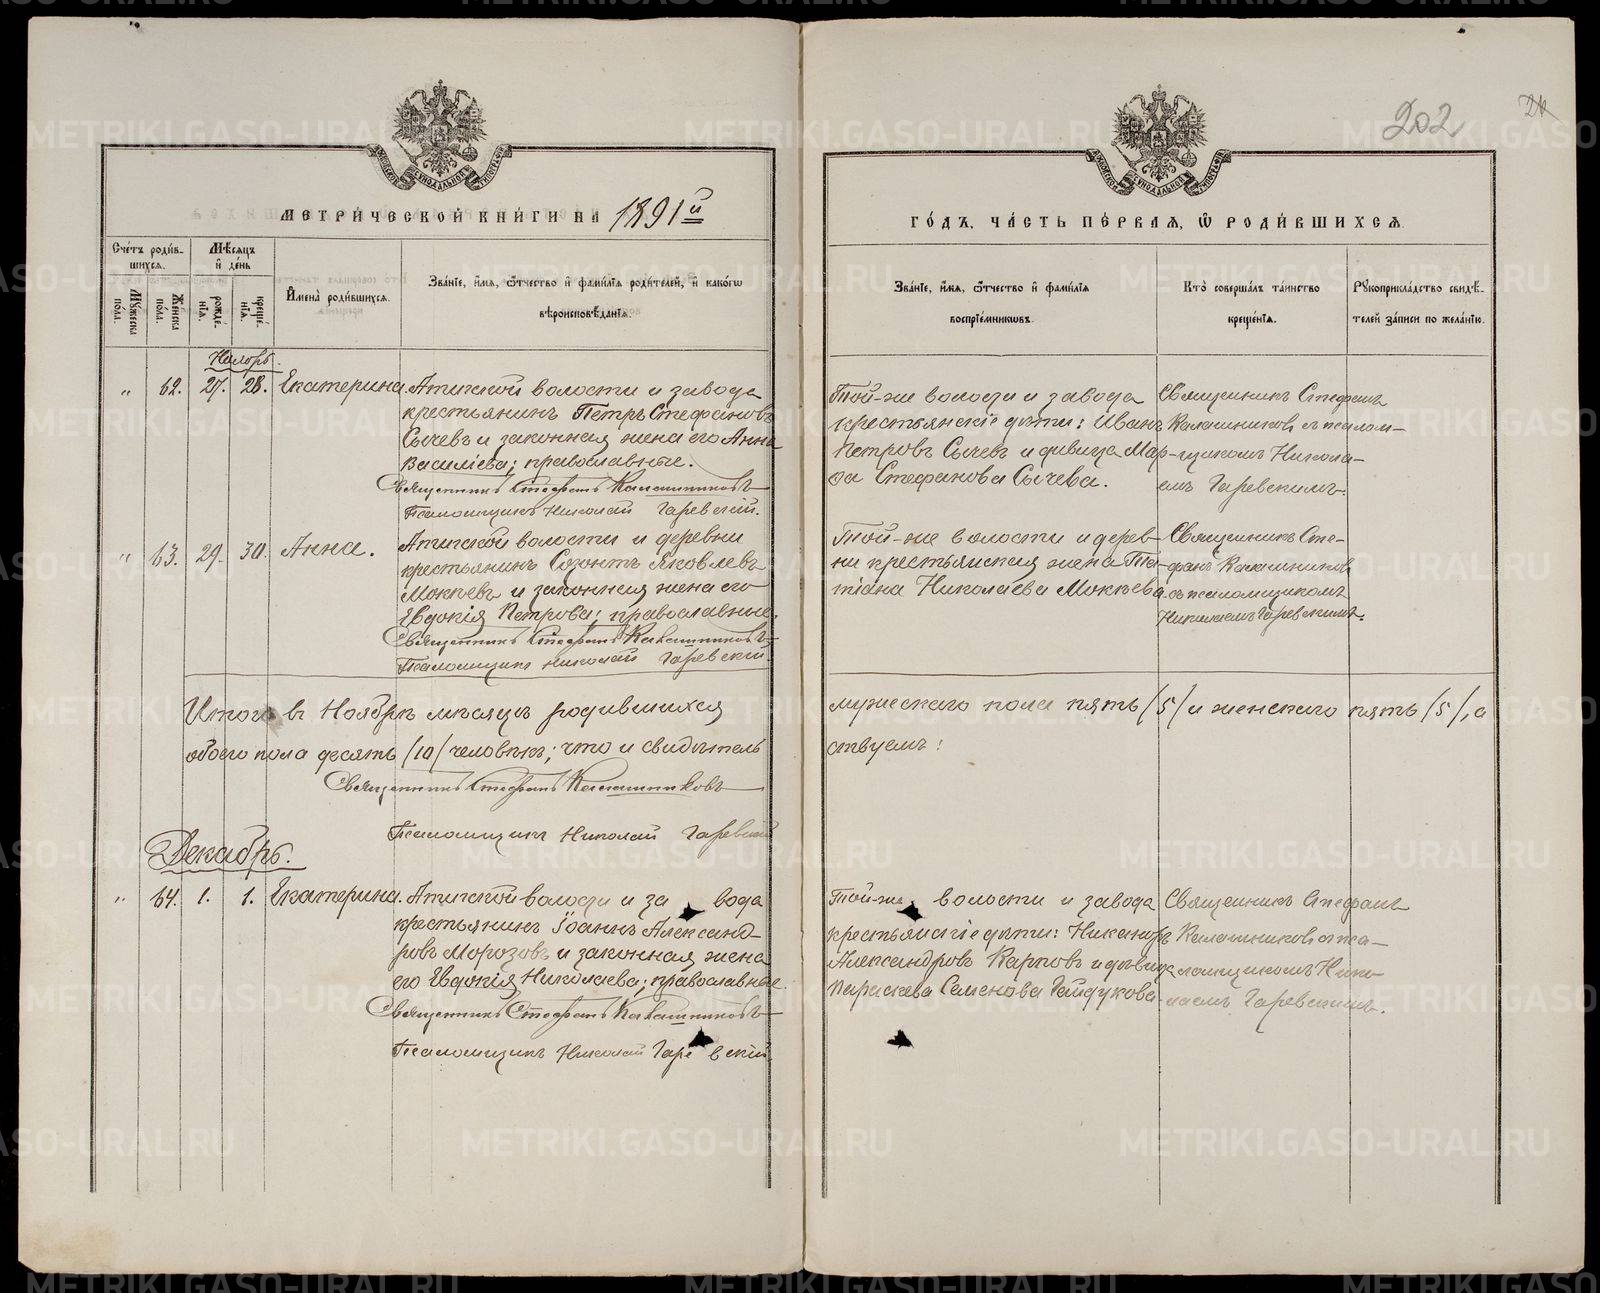 202
МЕТРИ́ЧЕСКОЙ КНИ́ГИ НА 1891й
ГО́ДЪ, ЧА́СТЬ ПЕ́РВАЯ, Ѡ РОДИ́ВШИХСЯ.
Сче́тъ роди́в-
шихся.
Му́жеска по́ла.
Же́нска по́ла.
Мѣ́сяцъ
и҆ де́нь
рожде́нїя.
креще́нїя.
И҆мена̀ роди́вшихся.
Зва́нїе, и҆́мя, ѻ҆́тчество и҆ фами́лїя роди́телей, и҆ како́гѡ
вѣроисповѣ́данїя.
Зва́нїе, и҆́мя, ѻ҆́тчество и҆ фами́лїя
воспрїе́мниковъ.
Кто̀ соверша́лъ та́инство
креще́нїя.
Рꙋкоприкла́дство свидѣ́-
телей за́писи по жела́нїю.
Ноябрь.
" 62. 27. 28. Екатерина.
Атигской волости и завода
крестьянинъ Петръ Стефановъ
Сычевъ и законная жена его Анна
Василіева; православные.
Священникъ Стефанъ Калашниковъ
Псаломщикъ Николай Гаревскій.
Той-же волости и завода
крестьянскіе дѣти: Иванъ
Петровъ Сычевъ и дѣвица Мар-
ѳа Стефанова Сычева.
Священникъ Стефанъ
Калашниковъ съ псалом-
щикомъ Никола-
емъ Гаревскимъ.
" 63. 29. 30. Анна.
Атигской волости и деревни
крестьянинъ Созонтъ Яковлевъ
Мокѣевъ и законная жена его
Евдокія Петрова; православные.
Священникъ Стефанъ Калашниковъ
Псаломщикъ Николай Гаревскій.
Той-же волости и дерев-
ни крестьянская жена Та-
тіана Николаева Мокѣева.
Священникъ Сте-
фанъ Калашниковъ
съ псаломщикомъ
Николаемъ Гаревскимъ.
Итого въ Ноябрѣ мѣсяцѣ родившихся мужескаго пола пять /5/ и женскаго пять /5/, а
обоего пола десять /10/ человѣкъ; что и свидѣтель
ствуемъ:
Священникъ Стефанъ Калашниковъ
Псаломщикъ Николай Гаревскій
Декабрь.
" 64. 1. 1. Екатерина.
Атигской волости и завода
крестьянинъ Іоаннъ Александ-
ровъ Морозовъ и законная жена
его Евдокія Николаева; православные.
Священникъ Стефанъ Калашниковъ
Псаломщикъ Николай Гаревскій.
Той-же волости и завода
крестьянскіе дѣти: Никаноръ
Александровъ Карповъ и дѣвица
Параскева Семенова Гайдукова.
Священникъ Стефанъ
Калашниковъ съ пса-
ломщикомъ Нико-
лаемъ Гаревскимъ.
METRIKI.GASO-URAL.RU